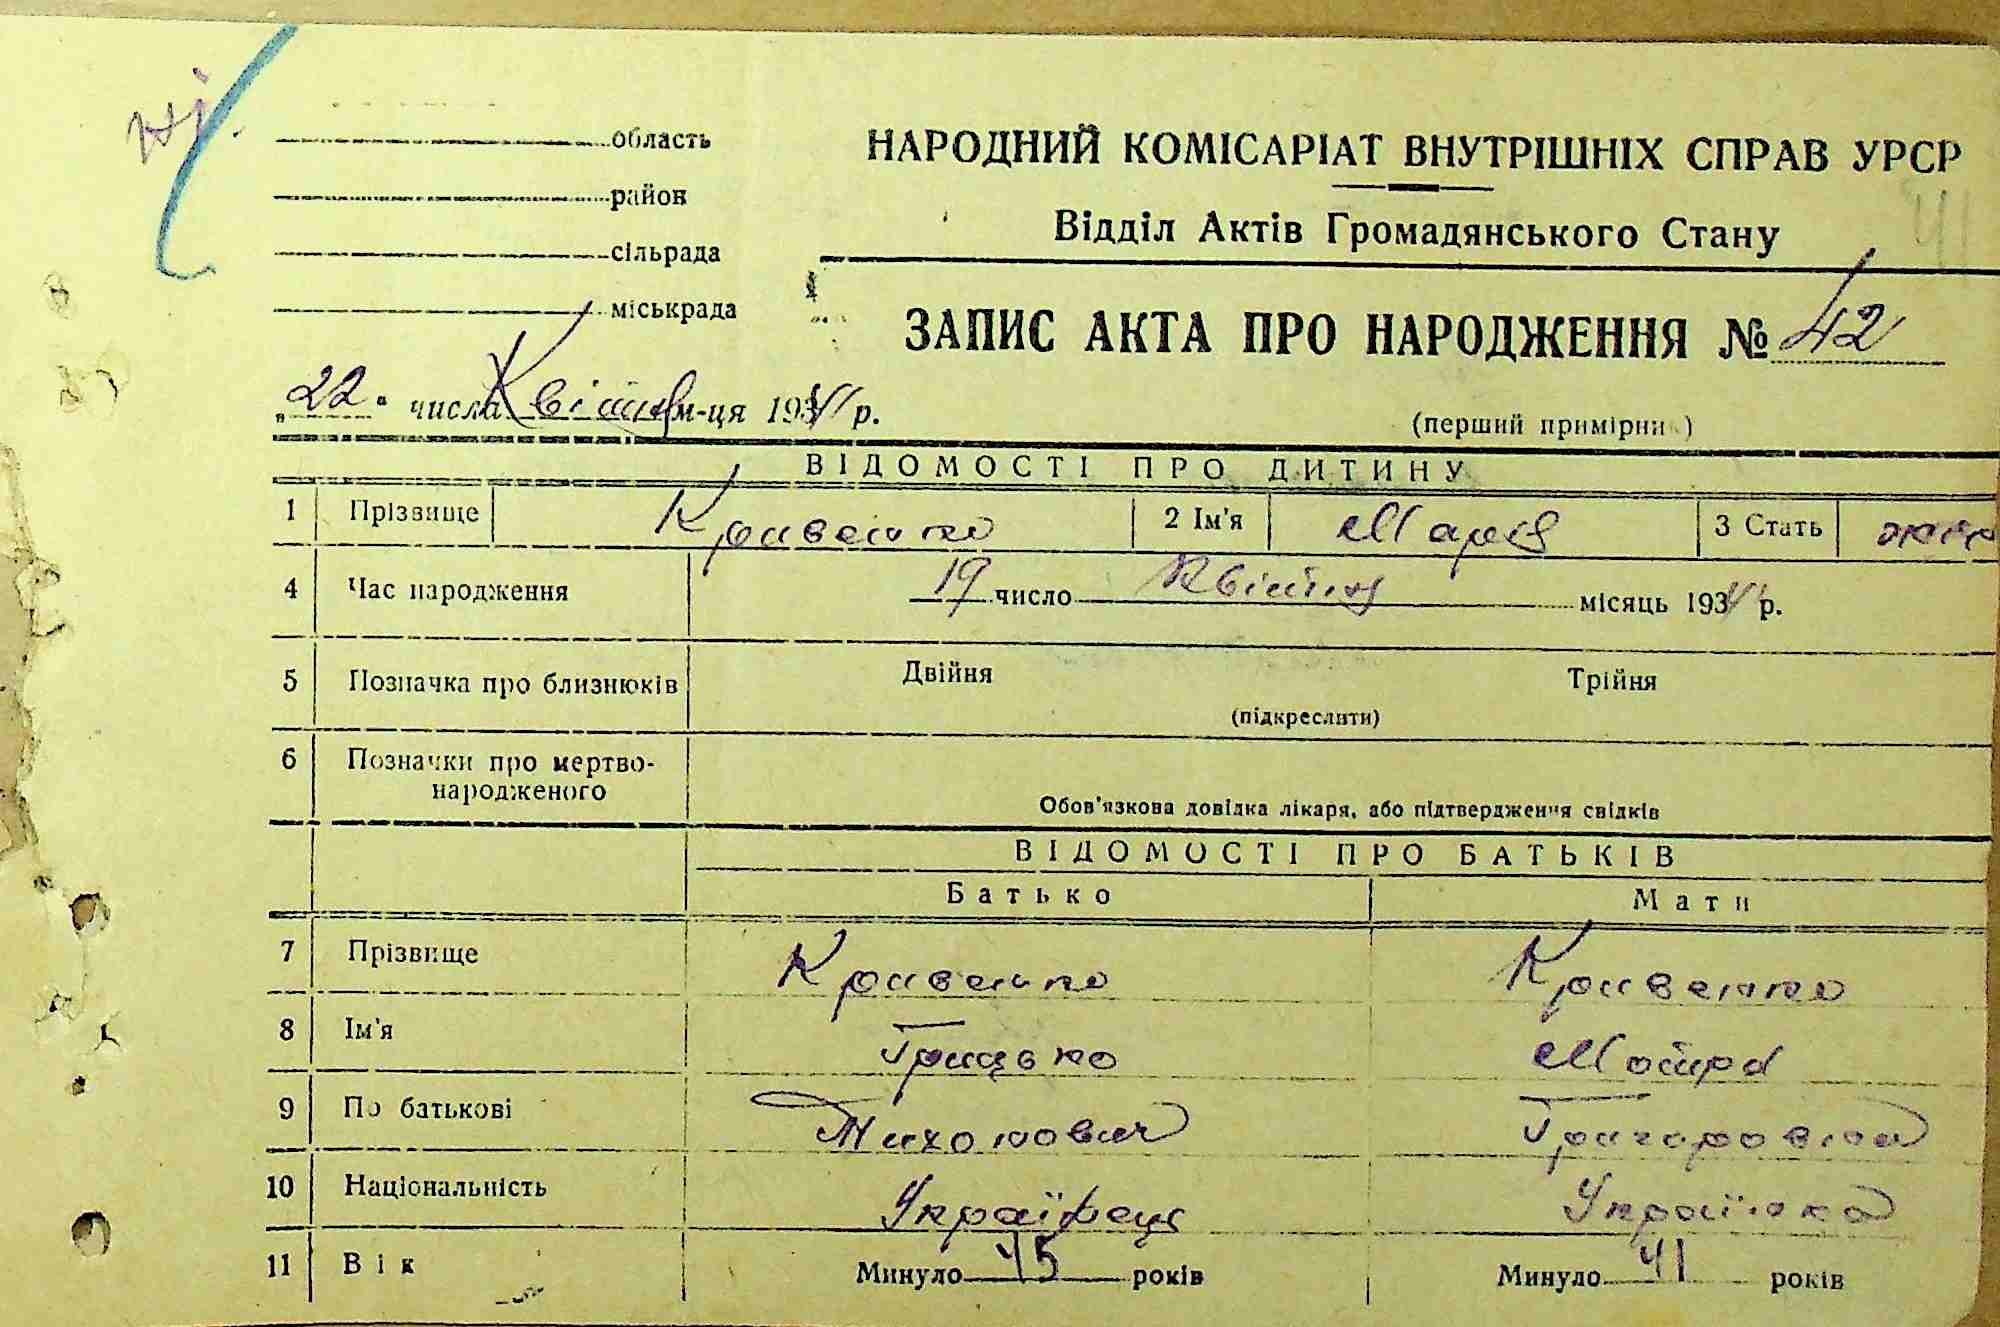 область
район
сільрада
міськрада
НАРОДНИЙ КОМІСАРІАТ ВНУТРІШНІХ СПРАВ УРСР
Відділ Актів Громадянського Стану
41
ЗАПИС АКТА ПРО НАРОДЖЕННЯ № 42
„22" числа Квітня м-ця 1941 р.
(перший примірник)
ВІДОМОСТІ ПРО ДИТИНУ
1 Прізвище Кривенко 2 Ім'я Марія 3 Стать
4 Час народження 19 число Квітня місяць 1941 р.
5 Позначка про близнюків Двійня Трійня
(підкреслити)
6 Позначки про мертво-
народженого
Обов'язкова довідка лікаря, або підтвердження свідків
ВІДОМОСТІ ПРО БАТЬКІВ
Батько Мати
7 Прізвище Кривенко Кривенко
8 Ім'я Грицько Мотря
9 По батькові Тихонович Григоровна
10 Національність Українець Українка
11 Вік Минуло 45 років Минуло 41 років